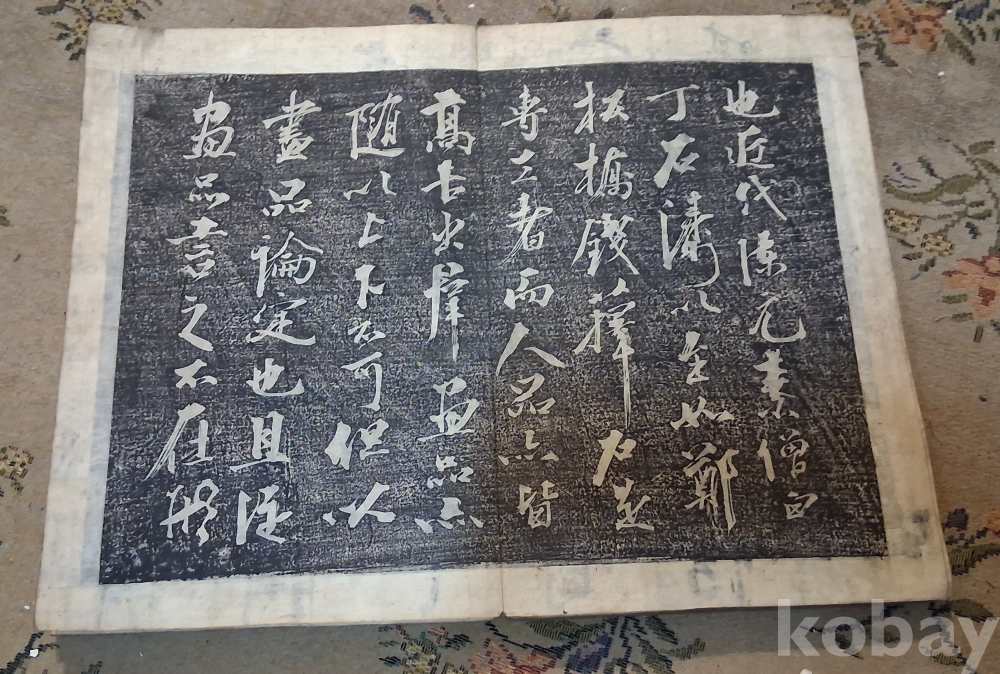 也近代陳元素僧白
丁石濤以至如鄭
板橋錢籜石是
專工者而人品亦皆
高古出群畫品亦
隨以上下不可但以
畫品論定也且從
畫品言之不在形
kobay